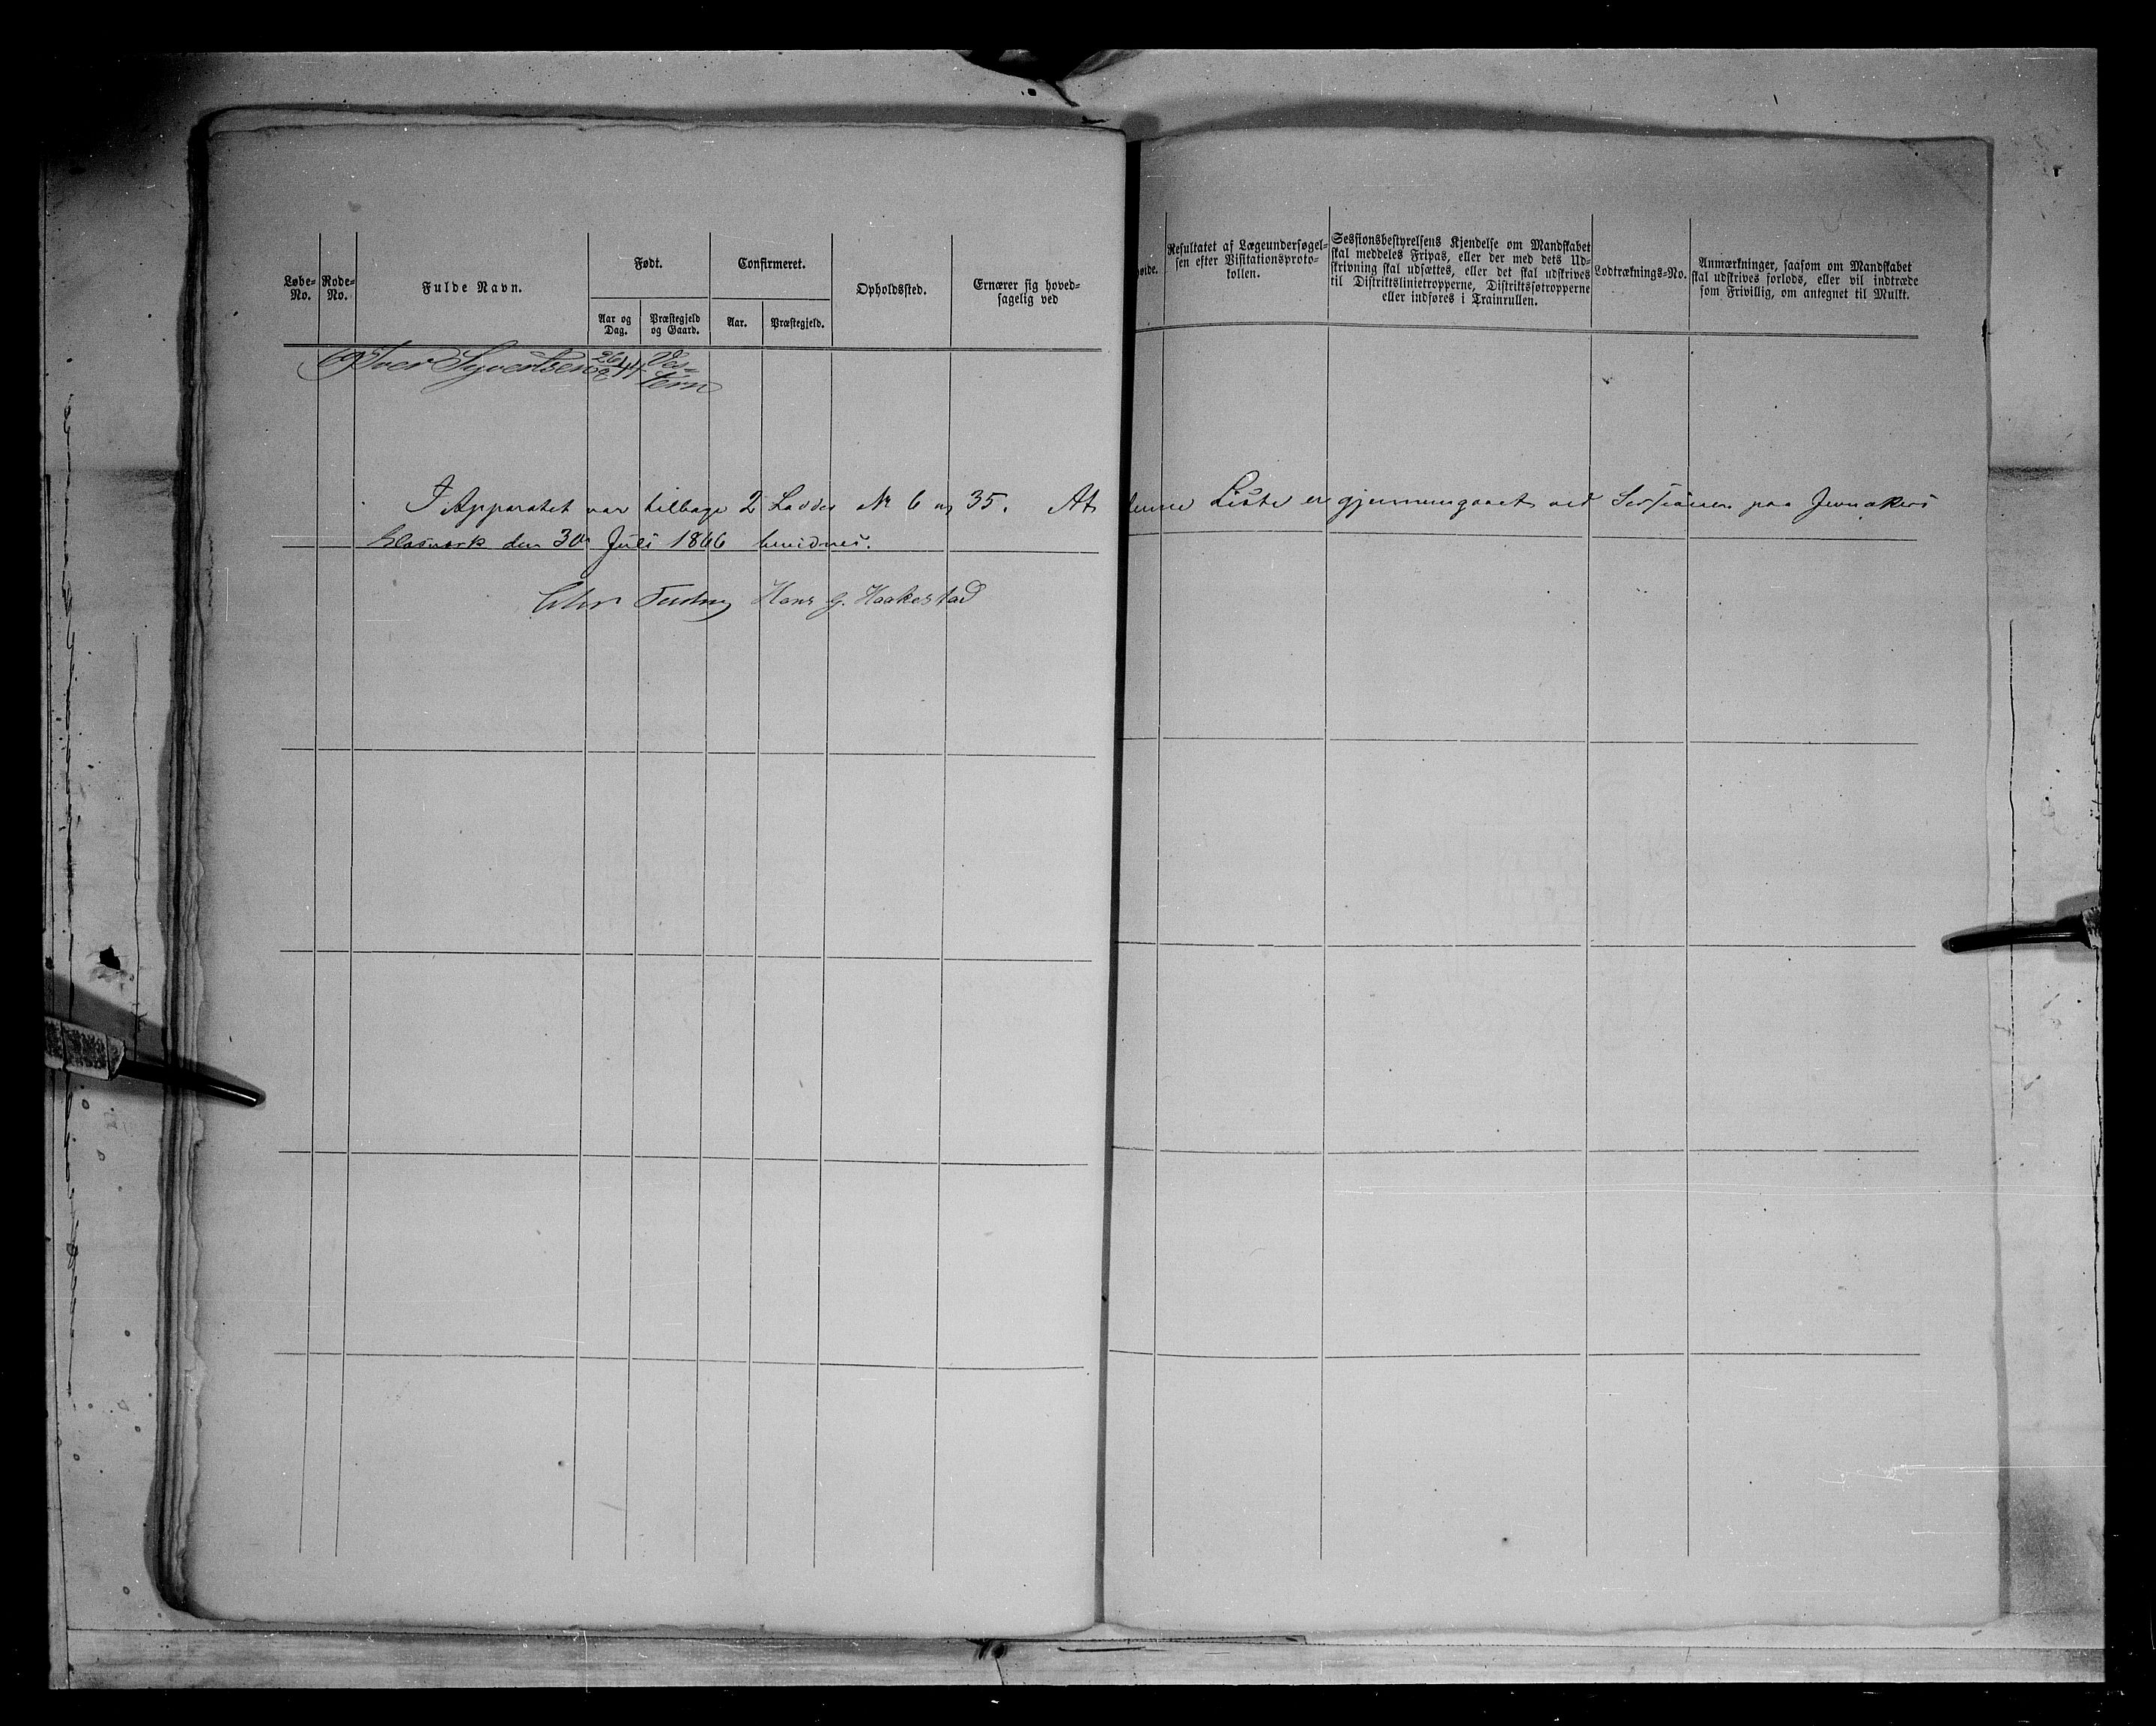 Løbe-No.
Rode-No.
Fulde Navn.
Født.
Aar og Dag.
Præstegjeld og Gaard.
Confirmeret.
Aar.
Præstegjeld.
Opholdssted.
Ernærer sig hoved-
sagelig ved
øide.
Resultatet af Lægeundersøgel-
sen efter Visitationsproto-
kollen.
Sessionsbestyrelsens Kjendelse om Mandskabet
skal meddeles Fripas, eller der med dets Ud-
skrivning skal udsættes, eller det skal udskrives
til Distriktslinietropperne, Distriktsfotropperne
eller indføres i Trainrullen.
Lodtræknings-No.
Anmærkninger, saasom om Mandskabet
skal udskrives forlods, eller vil indtræde
som Frivillig, om antegnet til Mulkt.
Iver Syvertsen 26/8 44 Ves-
tern
I Apparatet var tilbage 2 Lodder No 6 og 35. At denne Liste er gjennemgaaet ved Sessionen paa Jevnakers
Glasværk den 30te Juli 1866 bevidnes.
Hans G. Haakestad